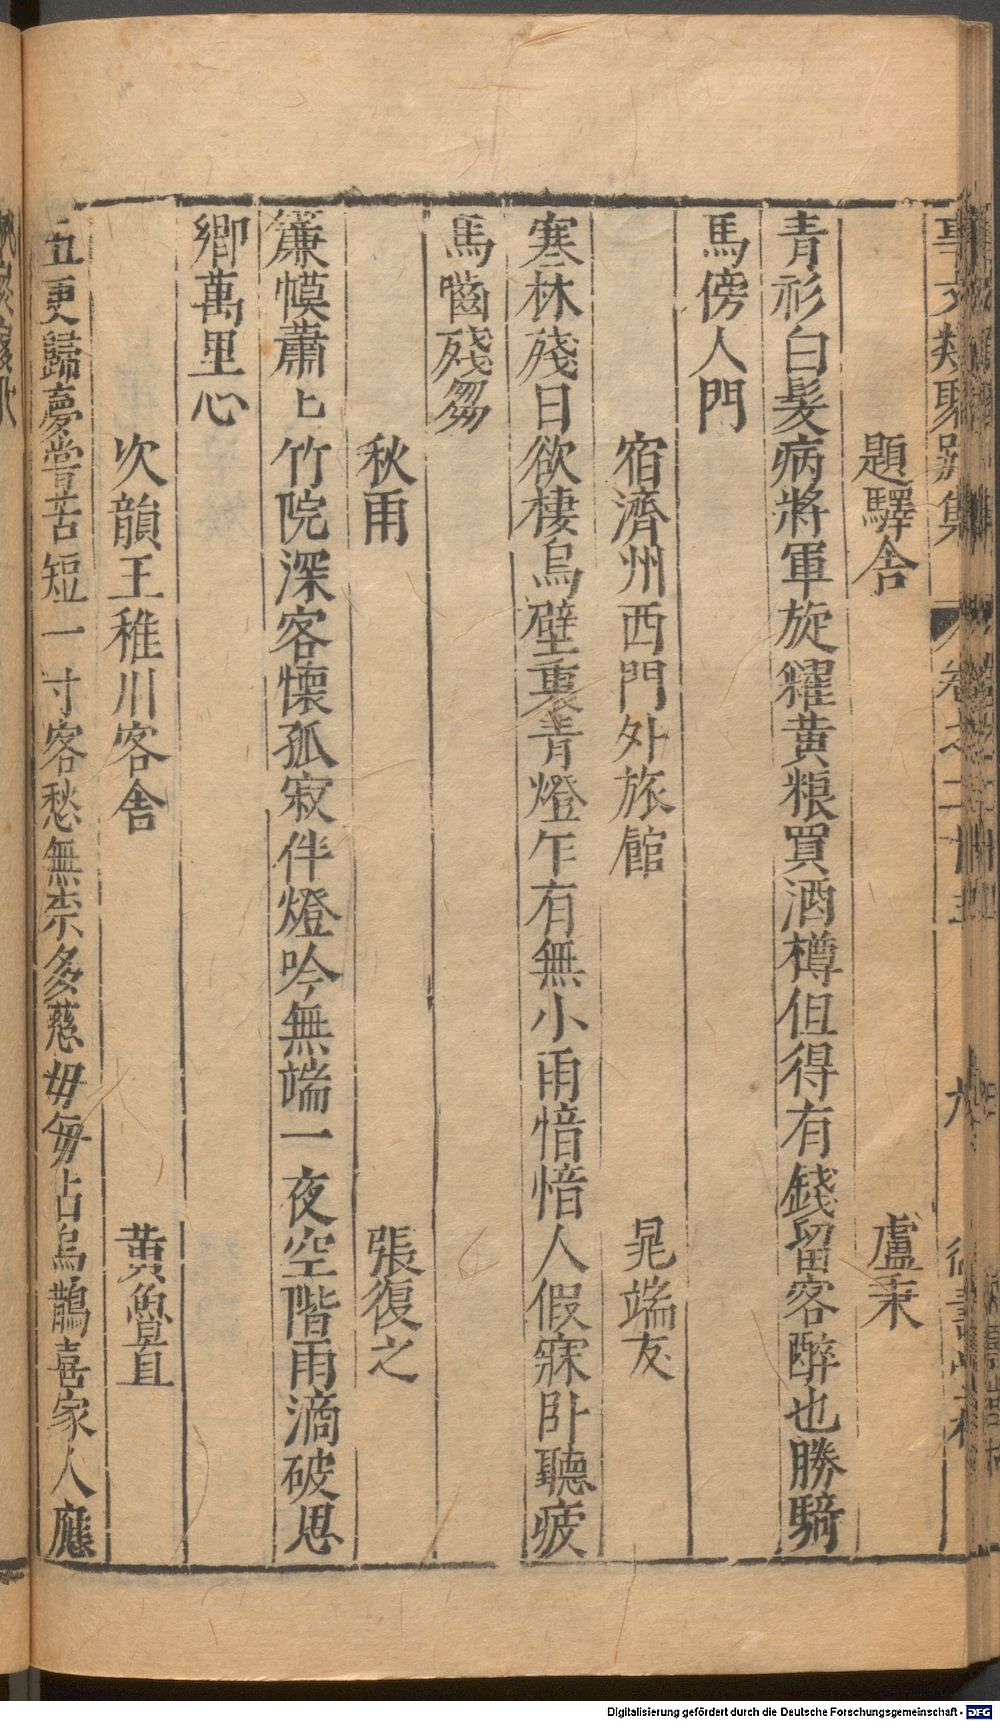 事文類聚別集 卷之二十五 九
題驛舍 盧秉
青衫白髮病將軍旋糴黄粮買酒樽但得有錢留客醉也勝騎
馬傍人門
宿濟州西門外旅館 晁端友
寒林殘日欲棲烏壁裏青燈乍有無小雨愔愔人假寐卧聽疲
馬嚙殘芻
秋雨 張復之
簾幙蕭上竹院深客懷孤寂伴燈吟無端一夜空階雨滴破思
鄉萬里心
次韻王稚川客舍 黄魯直
五更歸夢嘗苦短一寸客愁無柰多慈毋毎占烏鵲喜家人應
Digitalisierung gefördert durch die Deutsche Forschungsgemeinschaft - DFG